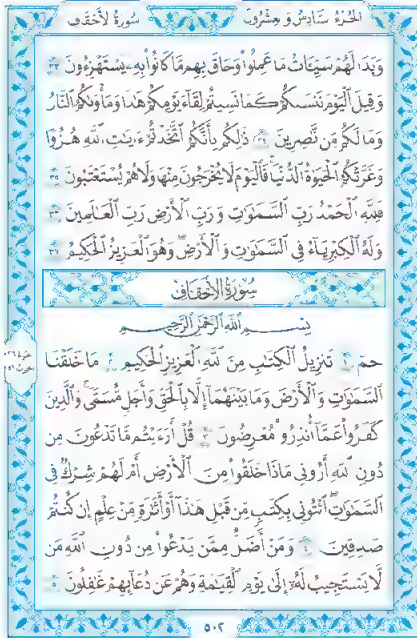 الجزء سادس وعشرون سورة الأحقاف
وَبَدَا لَهُمْ سَيِّـَٔاتُ مَا عَمِلُوا۟ وَحَاقَ بِهِم مَّا كَانُوا۟ بِهِۦ يَسْتَهْزِءُونَ ٣٣
وَقِيلَ ٱلْيَوْمَ نَنسَىٰكُمْ كَمَا نَسِيتُمْ لِقَآءَ يَوْمِكُمْ هَٰذَا وَمَأْوَىٰكُمُ ٱلنَّارُ
وَمَا لَكُم مِّن نَّٰصِرِينَ ٣٤ ذَٰلِكُم بِأَنَّكُمُ ٱتَّخَذْتُمْ ءَايَٰتِ ٱللَّهِ هُزُوًا
وَغَرَّتْكُمُ ٱلْحَيَوٰةُ ٱلدُّنْيَا فَٱلْيَوْمَ لَا يُخْرَجُونَ مِنْهَا وَلَا هُمْ يُسْتَعْتَبُونَ ٣٥
فَلِلَّهِ ٱلْحَمْدُ رَبِّ ٱلسَّمَٰوَٰتِ وَرَبِّ ٱلْأَرْضِ رَبِّ ٱلْعَٰلَمِينَ ٣٦
وَلَهُ ٱلْكِبْرِيَآءُ فِى ٱلسَّمَٰوَٰتِ وَٱلْأَرْضِ وَهُوَ ٱلْعَزِيزُ ٱلْحَكِيمُ ٣٧
سُورَةُ الأَحْقَافِ
بِسْمِ ٱللَّهِ ٱلرَّحْمَٰنِ ٱلرَّحِيمِ
حمٓ ١ تَنزِيلُ ٱلْكِتَٰبِ مِنَ ٱللَّهِ ٱلْعَزِيزِ ٱلْحَكِيمِ ٢ مَا خَلَقْنَا
ٱلسَّمَٰوَٰتِ وَٱلْأَرْضَ وَمَا بَيْنَهُمَآ إِلَّا بِٱلْحَقِّ وَأَجَلٍ مُّسَمًّى وَٱلَّذِينَ
كَفَرُوا۟ عَمَّآ أُنذِرُوا۟ مُعْرِضُونَ ٣ قُلْ أَرَءَيْتُم مَّا تَدْعُونَ مِن
دُونِ ٱللَّهِ أَرُونِى مَاذَا خَلَقُوا۟ مِنَ ٱلْأَرْضِ أَمْ لَهُمْ شِرْكٌ فِى
ٱلسَّمَٰوَٰتِ ٱئْتُونِى بِكِتَٰبٍ مِّن قَبْلِ هَٰذَآ أَوْ أَثَٰرَةٍ مِّنْ عِلْمٍ إِن كُنتُمْ
صَٰدِقِينَ ٤ وَمَنْ أَضَلُّ مِمَّن يَدْعُوا۟ مِن دُونِ ٱللَّهِ مَن
لَّا يَسْتَجِيبُ لَهُۥٓ إِلَىٰ يَوْمِ ٱلْقِيَٰمَةِ وَهُمْ عَن دُعَآئِهِمْ غَٰفِلُونَ ٥
٥٠٢